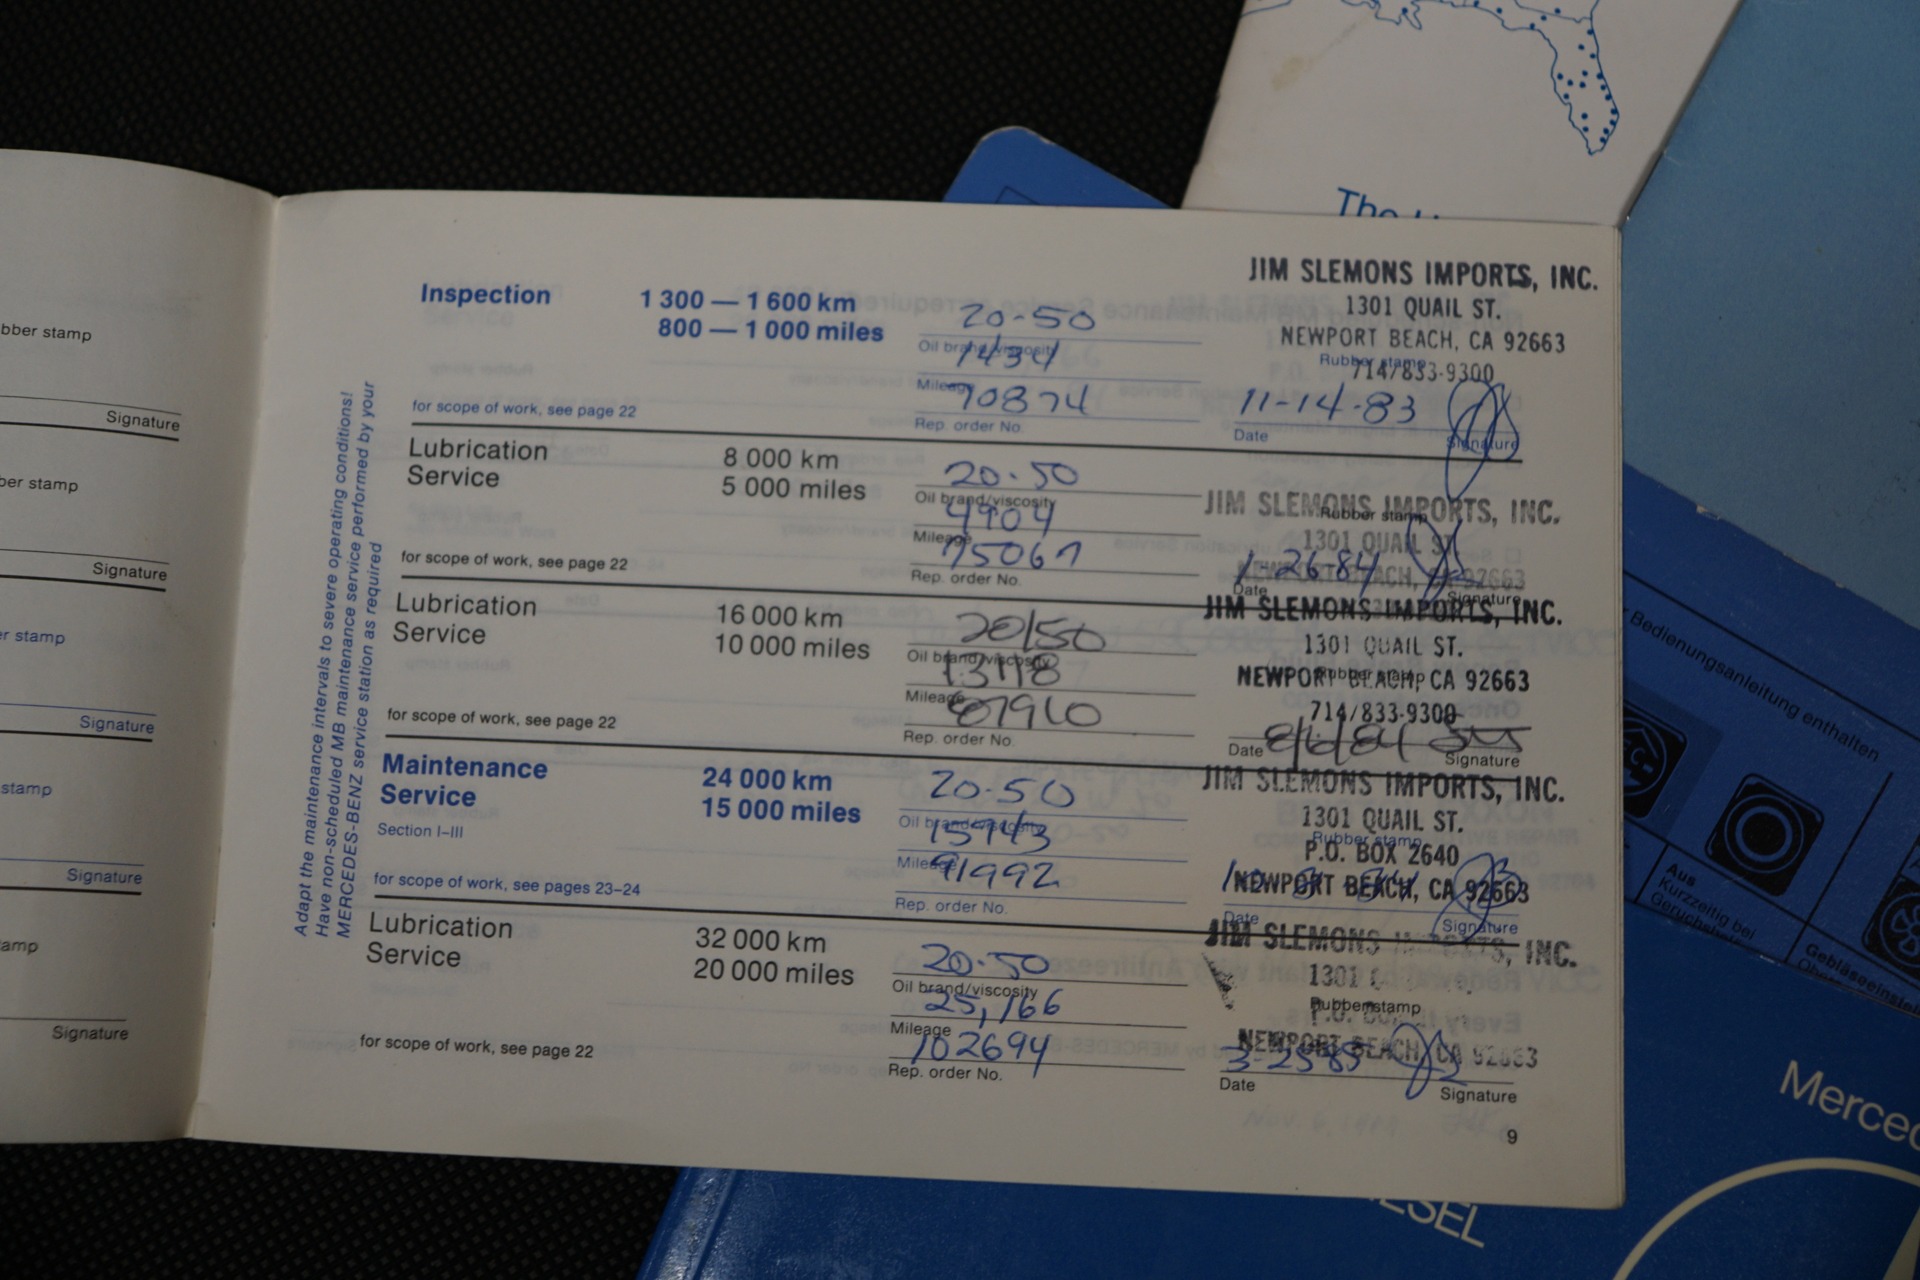 The
bber stamp
Signature
ber stamp
Signature
r stamp
Signature
stamp
Signature
amp
Signature
Adapt the maintenance intervals to severe operating conditions!
Have non-scheduled MB maintenance service performed by your
MERCEDES-BENZ service station as required
Inspection
1 300 — 1 600 km
800 — 1 000 miles
for scope of work, see page 22
20-50
Oil brand/viscosity
1434
Mileage
70874
Rep. order No.
JIM SLEMONS IMPORTS, INC.
1301 QUAIL ST.
NEWPORT BEACH, CA 92663
Rubber stamp
714/833-9300
11-14-83
Date
Signature
Lubrication
Service
8 000 km
5 000 miles
for scope of work, see page 22
20-50
Oil brand/viscosity
4904
Mileage
75067
Rep. order No.
JIM SLEMONS IMPORTS, INC.
Rubber stamp
1301 QUAIL ST
NEWPORT BEACH, CA 92663
1-26-84
Date
Signature
Lubrication
Service
16 000 km
10 000 miles
for scope of work, see page 22
20/50
Oil brand/viscosity
13118
Mileage
87960
Rep. order No.
JIM SLEMONS IMPORTS, INC.
1301 QUAIL ST.
Rubber stamp
NEWPORT BEACH, CA 92663
714/833-9300
Date
8/6/84
Signature
Maintenance
Service
Section I–III
24 000 km
15 000 miles
for scope of work, see pages 23–24
20-50
Oil brand/viscosity
15943
Mileage
91992
Rep. order No.
JIM SLEMONS IMPORTS, INC.
1301 QUAIL ST.
Rubber stamp
P.O. BOX 2640
NEWPORT BEACH, CA 92663
Date
Signature
Lubrication
Service
32 000 km
20 000 miles
for scope of work, see page 22
20-50
Oil brand/viscosity
25,166
Mileage
102694
Rep. order No.
JIM SLEMONS IMPORTS, INC.
1301
Rubber stamp
P.O.
NEWPORT BEACH, CA 92663
3-25-85
Date
Signature
9
Bedienungsanleitung enthalten
Aus
Kurzzeitig bei
Gebläseeinstel
Merced
ESEL